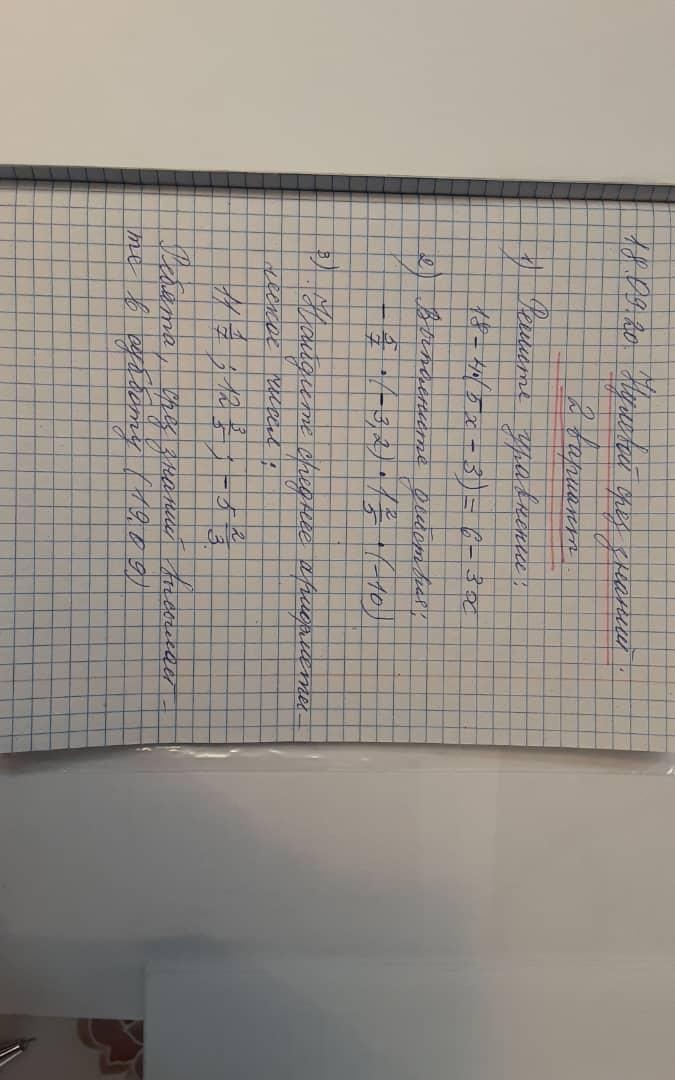 18.09.20. Нулевой срез знаний.
2 вариант.
1) Решите уравнение:
18 - 4(5x - 3) = 6 - 3x
2) Выполните действия:
- 5/7 · (-3,2) · 1 2/5 · (-10)
3). Найдите среднее арифмети-
ческое чисел:
11 1/7 ; 12 3/5 ; -5 2/3.
Ребята, срез знаний высылает-
те в субботу (19.09)